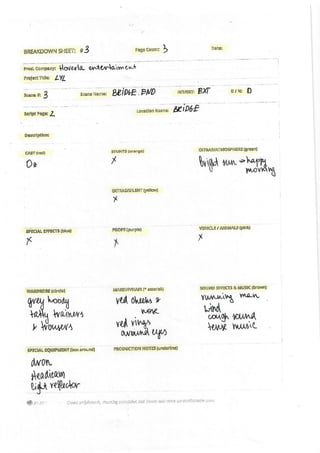 BREAKDOWN SHEET: # 3 Page Count: 3 Date:
Prod. Company: Hoverla entertaiment
Project Title: LYL
Scene #: 3 Scene Name: BRIDGE. END INT/EXT: EXT D / N: D
Script Page: 2 Location Name: BRIDGE
Description:
CAST (red) STUNTS (orange) EXTRAS/ATMOSPHERE (green)
X bright sun → happy
morning
EXTRAS/SILENT (yellow)
X
SPECIAL EFFECTS (blue) PROPS (purple) VEHICLE / ANIMALS (pink)
X X X
WARDROBE (circle) MAKEUP/HAIR (* asterisk) SOUND EFFECTS & MUSIC (brown)
grey hoody red cheeks & running man
tatty trainers nose wind
& trousers red rings cough sound
around eyes tense music
SPECIAL EQUIPMENT (box around) PRODUCTION NOTES (underline)
dron
Headicam
light reflector